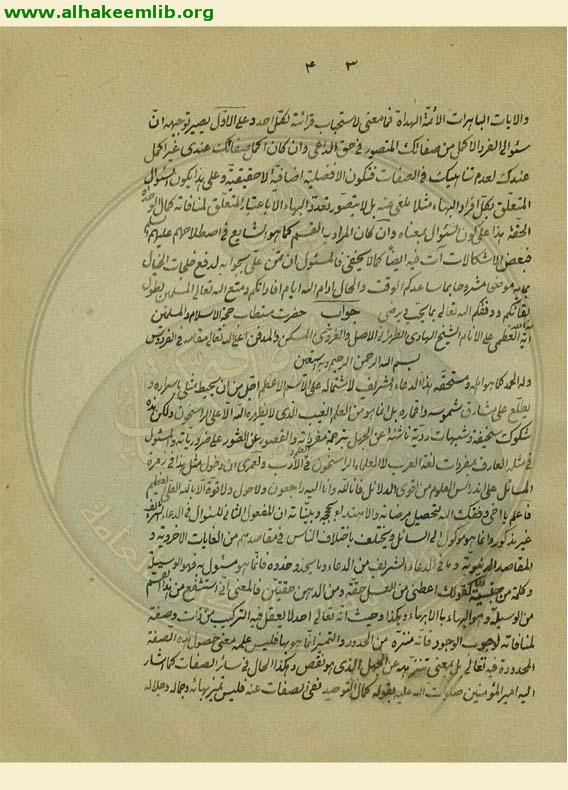 www.alhakeemlib.org
٣ ٤
والايات الباهرات الأئمة الهداة فما معنى لاستحباب قرائته لكل احد وعلى الاوّل يصير توجيهه انّ
سئوالى الفرد الاكمل من صفاتك المتصور فى حق الداعى وان كان اكمل صفاتك عندى غير اكمل
عندك لعدم تناهيك فى الصفات فتكون الافضلية اضافية لا حقيقية وعلى هذا يكون السئوال
المتعلق بكل افراد البهاء مثلا ملغى عنه بل لا يتصور تعدد البهاء الا باعتبار المتعلق لمنافاته كمال الوحدة
الحقة هذا على كون السئوال بمعناه وان كان المراد به القسم كما هو الشايع فى اصطلاحاتهم عليهم السلم
فبعض الاشكالات آت فيه ايضاً كما لا يخفى فالمسئول ان تمنّ على بجوابه لدفع
وساعدكم الوقت والحال ادام الله ايام افاداتكم ومتع الله تعالى المسلمين بطول
بقائكم ووفقكم الله تعالى بما يحب ويرضى جواب حضرت مستطاب حجة الاسلام والمسلمين
آية الله العظمى على الانام الشيخ الهادى الطهرانى الاصل والغروى المسكن والمدفن اعلى الله تعالى مقامه فى الفردوس
بسم الله الرحمن الرحيم وبه نستعين
وله الحمد كما هو اهله ومستحقه هذا الدعاء الشريف لاشتماله على الاسم الاعظم اجلّ من ان يحيط مثلى باسراره و
يطلع على مشارق شموسه واقماره بل انما هو من العلم الغيب الذى لا يظهره الله الا على الراسخون ولكن هذه
شكوك سخيفة وشبهات ردية ناشئة عن الجهل بترجمة مفرداته والقصور عن العثور على ضرورياته والمسئول
فى مثله العارف بمفردات لغة العرب لا العلماء الراسخون فى العلم والادب ولعمرى ان دخول مثل هذا فى زمرة
المسائل على اندراس العلوم من اقوى الدلائل فانا لله وانا اليه راجعون ولا حول ولا قوة الا بالله العلى العظيم
فاعلم يا اخى وفقك الله لتحصيل مرضاته والاهتداء بحججه وبيّناته ان المفعول الثانى للسئوال فى الدعاء الشريف
غير مذكور وانما هو موكول الى السائل ويختلف باختلاف الناس فى مقاصدهم من الغايات الاخروية و
المقاصد الدنيوية وما فى الدعاء الشريف من الدعاء وما يحذو حذوه فانما هو مسئول به فهو الوسيلة
وكلمة من كقولك اعطنى من العسل حقة ومن الدهن حقتين فالمعنى انى استشفع من هذا القسم
من الوسيلة وهو البهاء بالابهاء وهكذا وحيث انه تعالى احد لا يعقل فيه التركيب من ذات وصفة
لمنافاته لوجوب الوجود فانه منزه عن الحدود والتميز انما هو بها فليس علمه معنى حصول هذه الصفة
المحدودة فيه تعالى بل معنى تنزهه عن الجهل الذى هو نقص وهكذا الحال فى سائر الصفات كما اشار
اليه امير المؤمنين صلوات الله عليه بقوله كمال التوحيد نفى الصفات عنه فليس تميز بهائه وجماله وجلاله